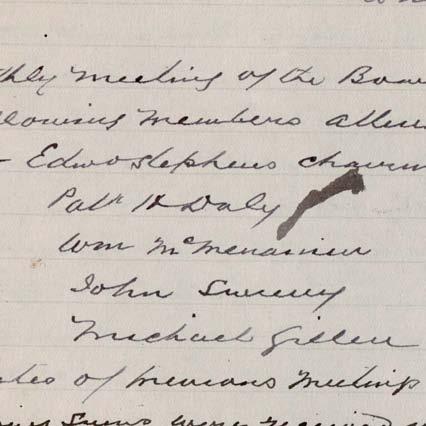 thly Meeting of the Boar
lowing Members atten
- Edwd Stephens chairm
Patk H Daly
Wm McMenamin
John Sweeny
Michael Gillen
tes of previous Meeting
were received